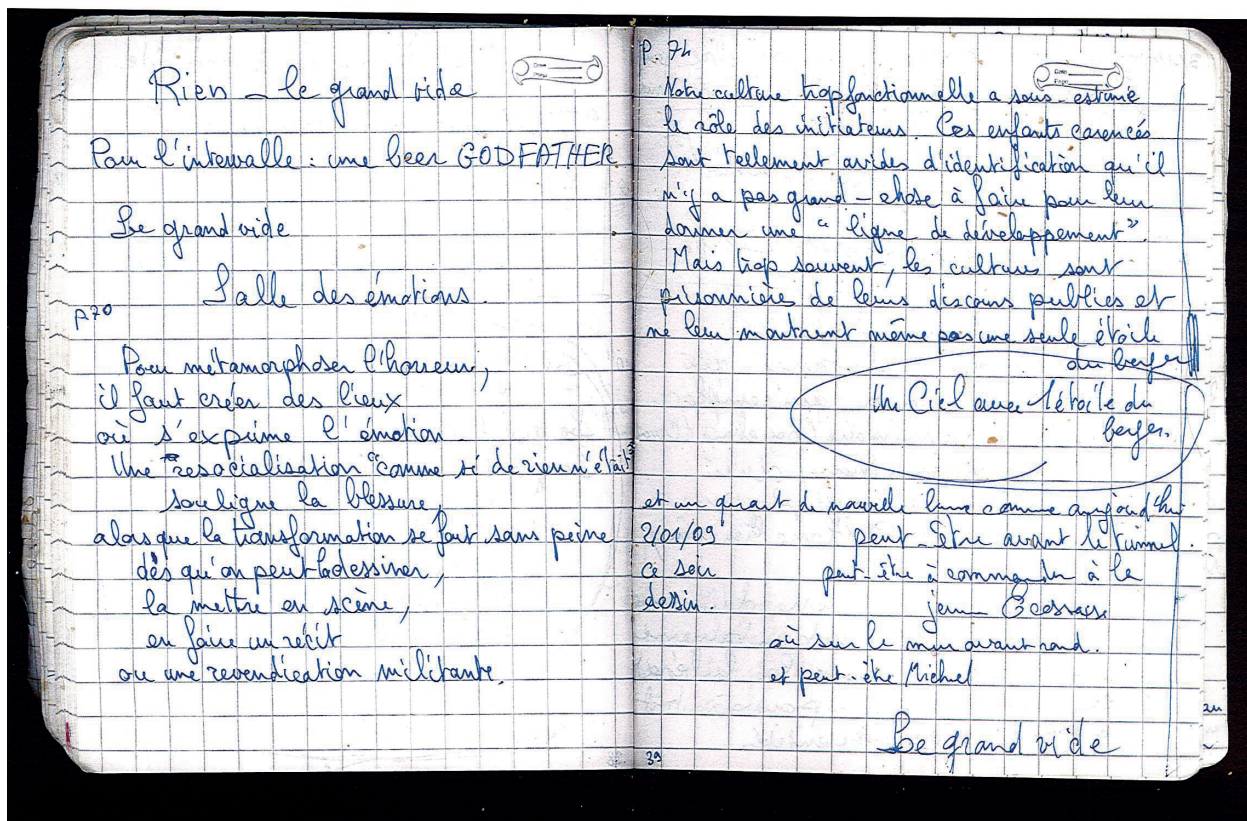 Rien _ le grand vide
Pour l'intervalle : une beer GODFATHER.
Le grand vide
Salle des émotions.
P.70
Pour métamorphoser l'horreur,
il faut créer des lieux
où s'exprime l'émotion.
Une "resocialisation "comme si de rien n'était"
souligne la blessure,
alors que la transformation se fait sans peine
dès qu'on peut la dessiner,
la mettre en scène,
en faire un récit
ou une revendication militante.
P. 74
Date
Page
Notre culture trop fonctionnelle a sous-estimé
le rôle des initiateurs. Ces enfants carencés
sont tellement avides d'identification qu'il
n'y a pas grand-chose à faire pour leur
donner une "ligne de développement".
Mais trop souvent, les cultures sont
prisonnières de leurs discours publics et
ne leur montrent même pas une seule étoile
du berger
Un Ciel avec l'étoile du
berger.
et un quart de nouvelle lune comme aujourd'hui
2/01/09 peut-être avant le tunnel.
ce soir peut-être à commander à la
dessin. jeune Ecossaise
où sur le mur avant rand.
et peut-être Michel
Le grand vide
39